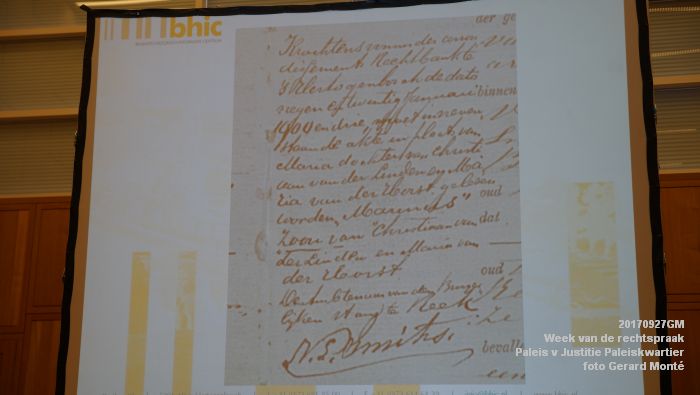 bhic
aer ge
Krachtens vonnis der arron
dissements Rechtbank te
's Hertogenbosch de dato
negen en twintig Januari
binnen
1900 en drie, moet in neven
staande akte in plaats van
Maria dochter van Christi
aan van der Linden en Ma
ria van der Horst gelezen
oud
worden, Marinus"
zoon van "Christiaan van
dat
der Linden en Maria van
der Horst
oud
De Ambtenaar van den Burger
lijken stand te Reek
N. L. Smits.
bevalle
een
20170927GM
Week van de rechtspraak
Paleis v Justitie Paleiskwartier
foto Gerard Monté